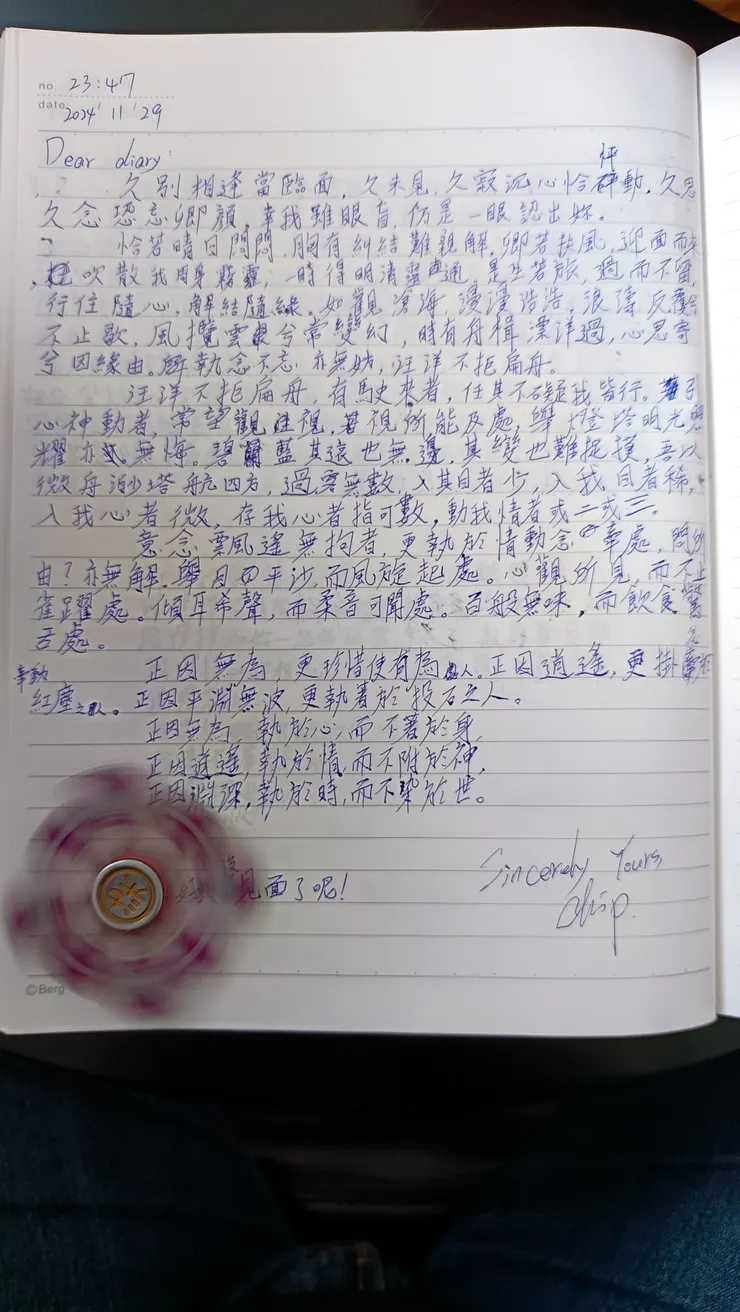 no. 23:47
date 2024' 11 '29
Dear diary:
怦
久別相逢當臨面，久未見，久寂沉心恰 動，久思
久念恐忘卿顏，幸我雖眼盲，仍是一眼認出妳。
恰若晴日悶悶，胸有糾結難親解，卿若扶風，迎面而來
，吹散我周身霧靈，一時得明清 通，是生若旅，過而不留，
行住隨心，解結隨緣。如觀滄海，漫漫浩浩，浪濤反覆
不止歇，風攬雲 今常變幻，時有舟楫漂洋過，心思寄
兮因緣由。 執念不忘亦無妨，汪洋不拒扁舟。
汪洋不拒扁舟，有駛來者，任其不礙我皆行。 引
心神動者，常望觀注視，若視所能及處，舉燈塔明光照
耀亦 無悔。碧 藍其遠也無邊，其變也難捉摸，吾以
微舟泊塔航四方，過客無數，入其目者少，入我目者稀，
入我心者微，存我心者指可數，動我情者或二或三。
意念雲風遙無拘者，更執於情動念牽處，問所
由？亦無解。舉目四平沙，而風旋起處。心觀所見，而不止
雀躍處。傾耳希聲，而柔音可聞處。百般無味，而飲食
吾處。
正因無為，更珍惜使有為 人。正因逍遙，更掛
牽動
紅塵之 人。正因平淵無波，更執著於投石之人。
正因無為，執於心，而不著於身，
正因逍遙，執於情，而不附於神，
正因淵深，執於時，而不染於世。
見面了呢！
Sincerely Yours,
©Berg